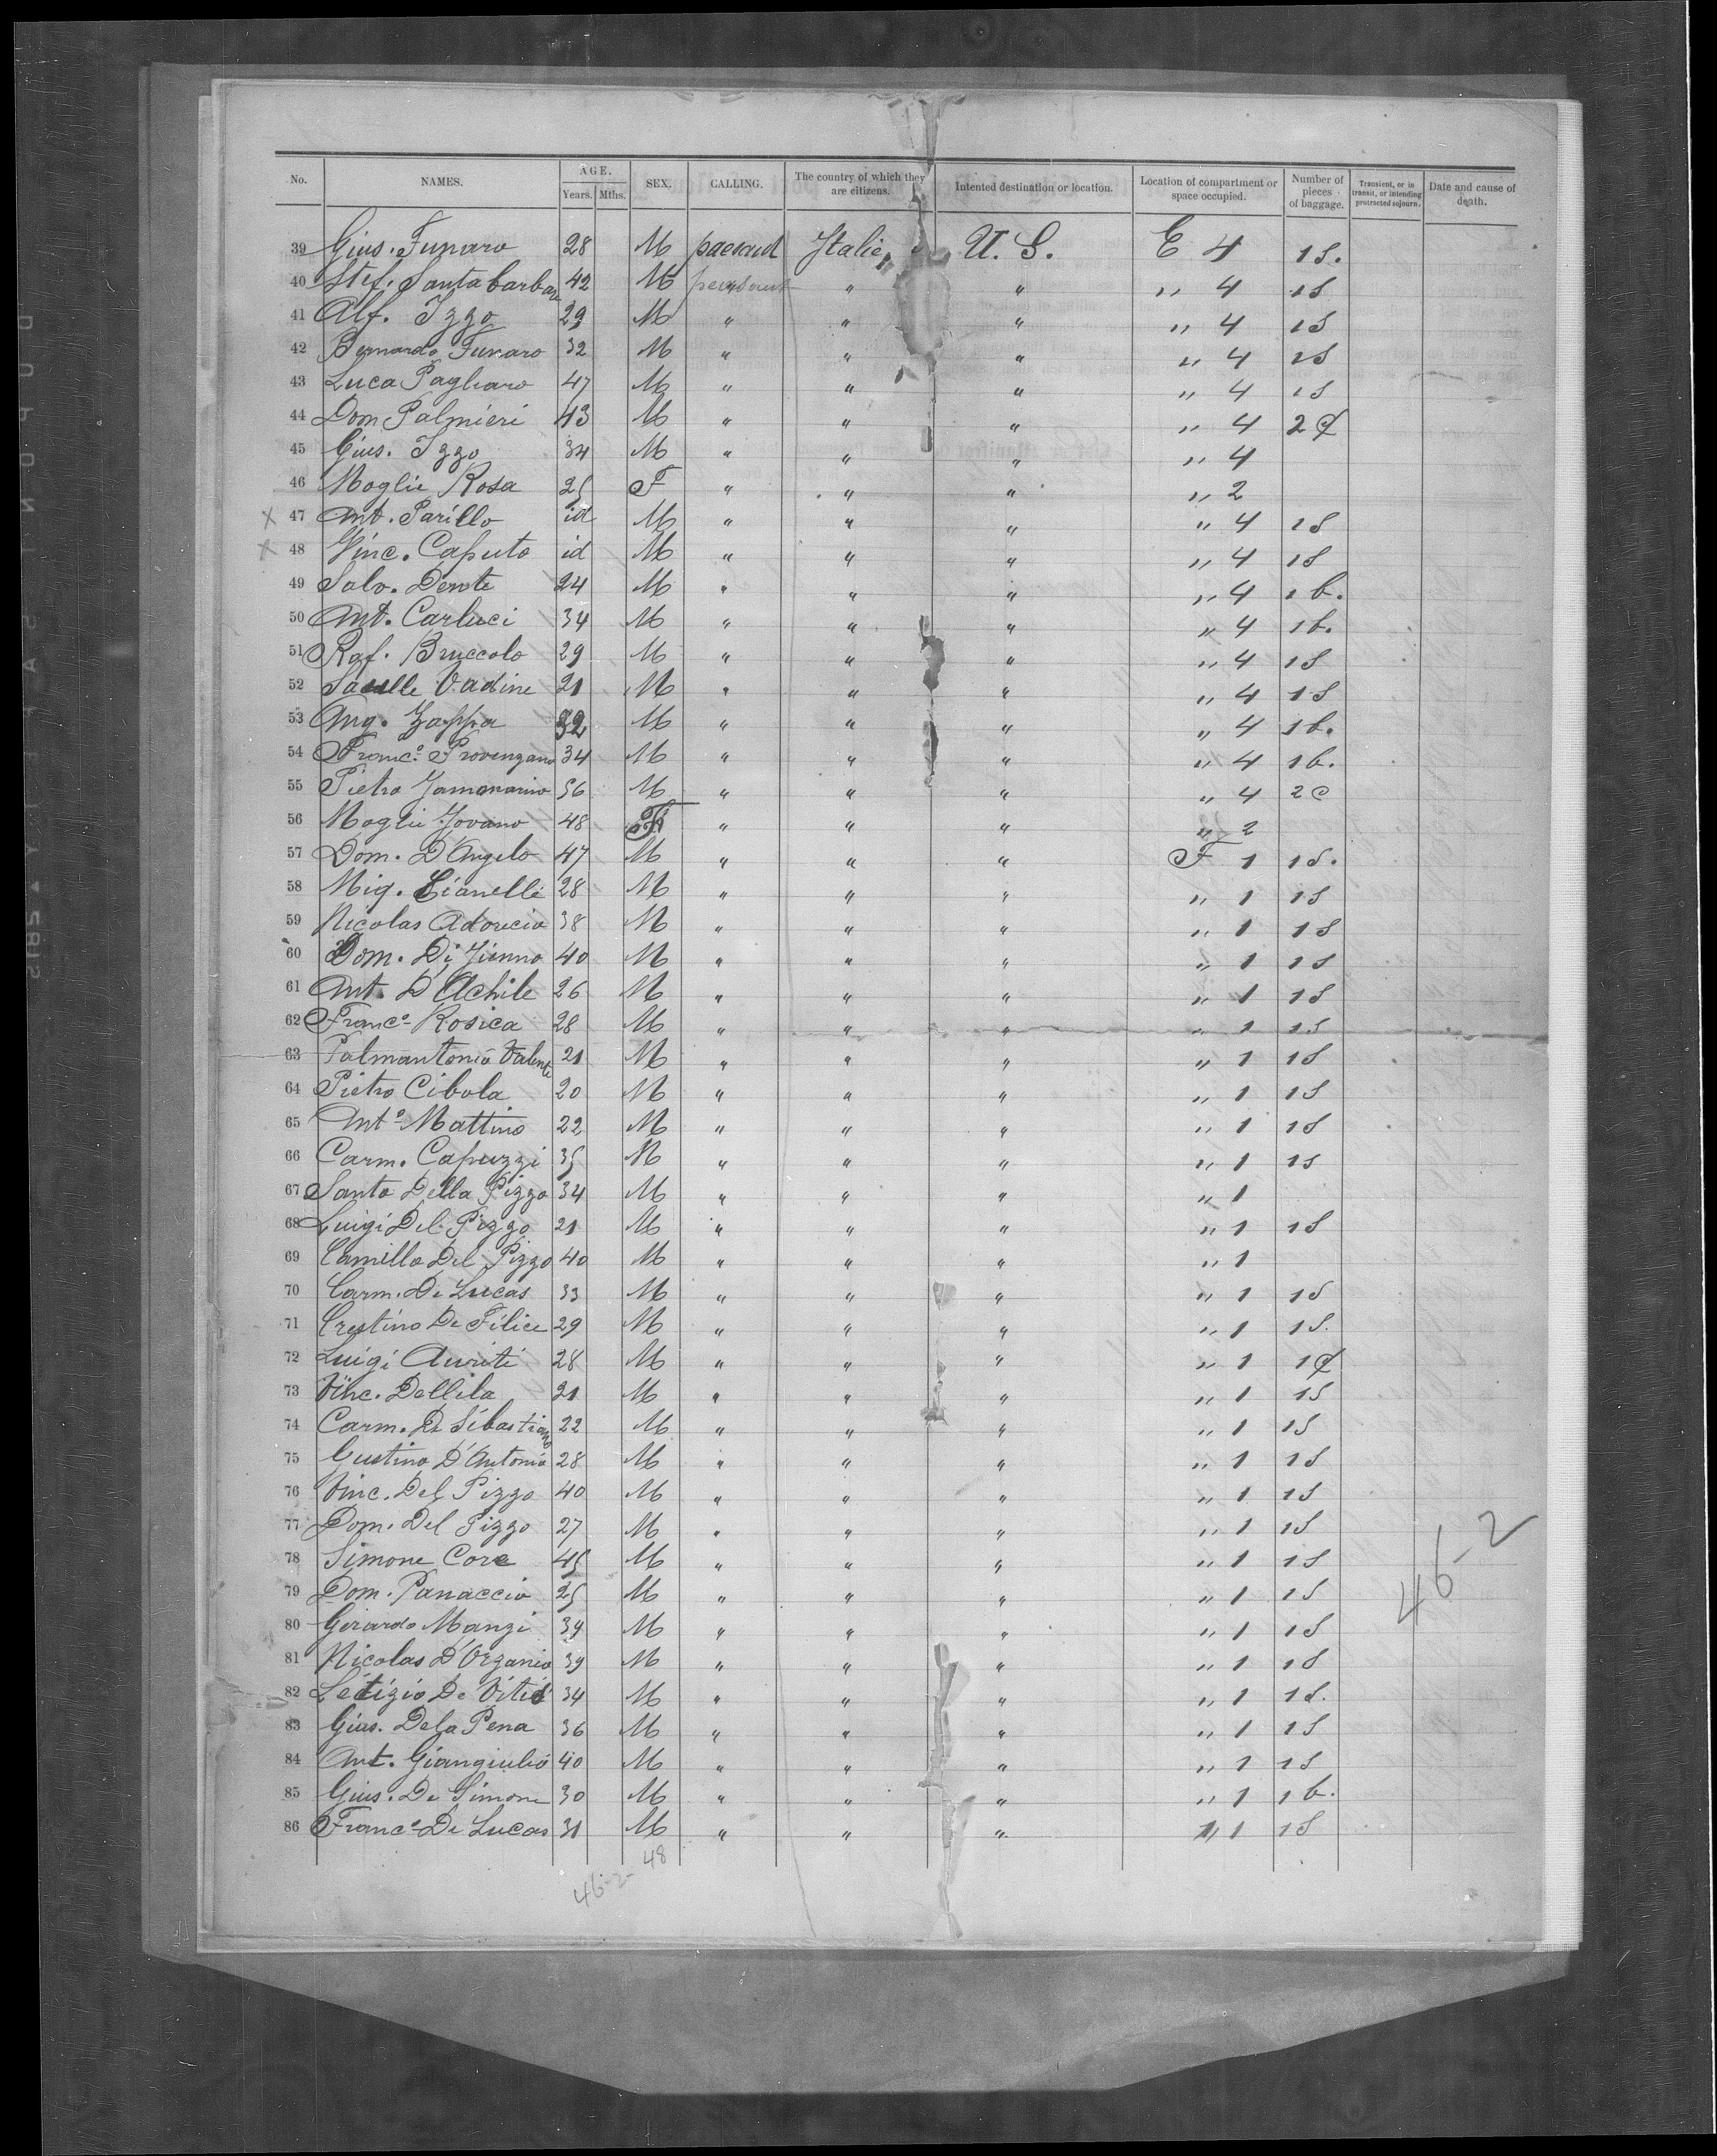 No. NAMES. AGE. Years. Mths. SEX. CALLING. The country of which they are citizens. Intented destination or location. Location of compartment or space occupied. Number of pieces of baggage. Transient, or in transit, or intending protracted sojourn. Date and cause of death.
39 Gius. Funaro 28 M Italie U. S. E 4 1 S.
40 Stef. Santabarbara 42 M " " " 4 1 S
41 Alf. Izzo 29 M " " " " 4 1 S
42 Bernardo Funaro 32 M " " " " 4 1 S
43 Luca Pagliaro 47 M " " " " 4 1 S
44 Dom Palmieri 43 M " " " " 4 2 C
45 Gius. Izzo 34 M " " " " 4
46 Moglie Rosa 25 F " " " " 2
X 47 Ant. Parillo id M " " " " 4 1 S
X 48 Vinc. Caputo id M " " " " 4 1 S
49 Salv. Dente 24 M " " " " 4 1 b.
50 Ant. Carluci 34 M " " " " 4 1 b.
51 Raf. Bruccolo 29 M " " " " 4 1 S
52 Vadine 21 M " " " " 4 1 S
53 Ang. Zappa 32 M " " " " 4 1 b.
54 Franco. Provenzano 34 M " " " " 4 1 b.
55 Pietro Jammarino 56 M " " " " 4 2 C
56 Moglie Jovano 48 F " " " " 2
57 Dom. D'Angelo 47 M " " " F 1 1 S.
58 Mig. Lianelli 28 M " " " " 1 1 S
59 Nicolas Adorucio 38 M " " " " 1 1 S
60 Dom. Di 40 M " " " " 1 1 S
61 Ant. D'Achile 26 M " " " " 1 1 S
62 Franco. Rosica 28 M " " " " 1 1 S
63 Palmantonio Valente 21 M " " " " 1 1 S
64 Pietro Cibola 20 M " " " " 1 1 S
65 Anto. Mattino 22 M " " " " 1 1 S
66 Carm. Capuzzi 35 M " " " " 1 1 S
67 Santo Della Pizzo 34 M " " " " 1
68 Luigi Del Pizzo 21 M " " " " 1 1 S
69 Camillo Del Pizzo 40 M " " " " 1
70 Carm. De Lucas 33 M " " " " 1 1 S
71 Crestino De Filice 29 M " " " " 1 1 S.
72 Luigi Auriti 28 M " " " " 1 1 C
73 Vinc. Dellila 21 M " " " " 1 1 S
74 Carm. De Sibastiano 22 M " " " " 1 1 S
75 Gustino D'Antonio 28 M " " " " 1 1 S
76 Vinc. Del Pizzo 40 M " " " " 1 1 S
77 Dom. Del Pizzo 27 M " " " " 1 1 S
78 Simone Core 45 M " " " " 1 1 S
79 Dom. Panaccio 25 M " " " " 1 1 S
46-2
80 Girardo Manzi 39 M " " " " 1 1 S
81 Nicolas D'Organio 39 M " " " " 1 1 S
82 Letizio De Vitis 34 M " " " " 1 1 S.
83 Gius. Dela Pena 36 M " " " " 1 1 S
84 Ant. Giangiulio 40 M " " " " 1 1 S
85 Gius. De Simone 30 M " " " " 1 1 b.
86 Franco. De Lucas 31 M " " " " 1 1 S
46-2- 48